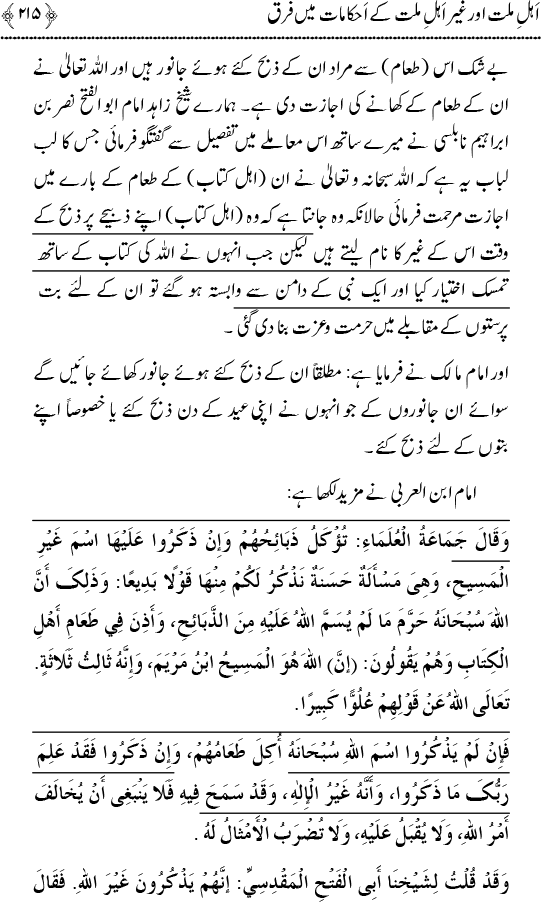 اَہلِ ملت اور غیر اَہلِ ملت کے اَحکامات میں فرق ﴿۲۱۵﴾
بے شک اس (طعام) سے مراد ان کے ذبح کئے ہوئے جانور ہیں اور اللہ تعالیٰ نے
ان کے طعام کے کھانے کی اجازت دی ہے۔ ہمارے شیخ زاہد امام ابو الفتح نصر بن
ابراہیم نابلسی نے میرے ساتھ اس معاملے میں تفصیل سے گفتگو فرمائی جس کا لب
لباب یہ ہے کہ اللہ سبحانہ و تعالیٰ نے ان (اہل کتاب) کے طعام کے بارے میں
اجازت مرحمت فرمائی حالانکہ وہ جانتا ہے کہ وہ (اہل کتاب) اپنے ذبیحے پر ذبح کے
وقت اس کے غیر کا نام لیتے ہیں لیکن جب انہوں نے اللہ کی کتاب کے ساتھ
تمسک اختیار کیا اور ایک نبی کے دامن سے وابستہ ہو گئے تو ان کے لئے بت
پرستوں کے مقابلے میں حرمت و عزت بنا دی گئی۔
اور امام مالک نے فرمایا ہے: مطلقاً ان کے ذبح کئے ہوئے جانور کھائے جائیں گے
سوائے ان جانوروں کے جو انہوں نے اپنی عید کے دن ذبح کئے یا خصوصاً اپنے
بتوں کے لئے ذبح کئے۔
امام ابن العربی نے مزید لکھا ہے:
وَقَالَ جَمَاعَةُ الْعُلَمَاءِ: تُؤْكَلُ ذَبَائِحُهُمْ وَإِنْ ذَكَرُوا عَلَيْهَا اسْمَ غَيْرِ
الْمَسِيحِ، وَهِيَ مَسْأَلَةٌ حَسَنَةٌ نَذْكُرُ لَكُمْ مِنْهَا قَوْلًا بَدِيعًا: وَذَلِكَ أَنَّ
اللهَ سُبْحَانَهُ حَرَّمَ مَا لَمْ يُسَمَّ اللهُ عَلَيْهِ مِنَ الذَّبَائِحِ، وَأَذِنَ فِي طَعَامِ أَهْلِ
الْكِتَابِ وَهُمْ يَقُولُونَ: (إِنَّ) اللهَ هُوَ الْمَسِيحُ ابْنُ مَرْيَمَ، وَإِنَّهُ ثَالِثُ ثَلَاثَةٍ.
تَعَالَى اللهُ عَنْ قَوْلِهِمْ عُلُوًّا كَبِيرًا.
فَإِنْ لَمْ يَذْكُرُوا اسْمَ اللهِ سُبْحَانَهُ أُكِلَ طَعَامُهُمْ، وَإِنْ ذَكَرُوا فَقَدْ عَلِمَ
رَبُّكَ مَا ذَكَرُوا، وَأَنَّهُ غَيْرُ الْإِلٰهِ، وَقَدْ سَمَحَ فِيهِ فَلَا يَنْبَغِى أَنْ يُخَالَفَ
أَمْرُ اللهِ، وَلَا يُقْبَلُ عَلَيْهِ، وَلَا تُضْرَبُ الْأَمْثَالُ لَهُ.
وَقَدْ قُلْتُ لِشَيْخِنَا أَبِى الْفَتْحِ الْمَقْدِسِيِّ: إِنَّهُمْ يَذْكُرُونَ غَيْرَ اللهِ. فَقَالَ